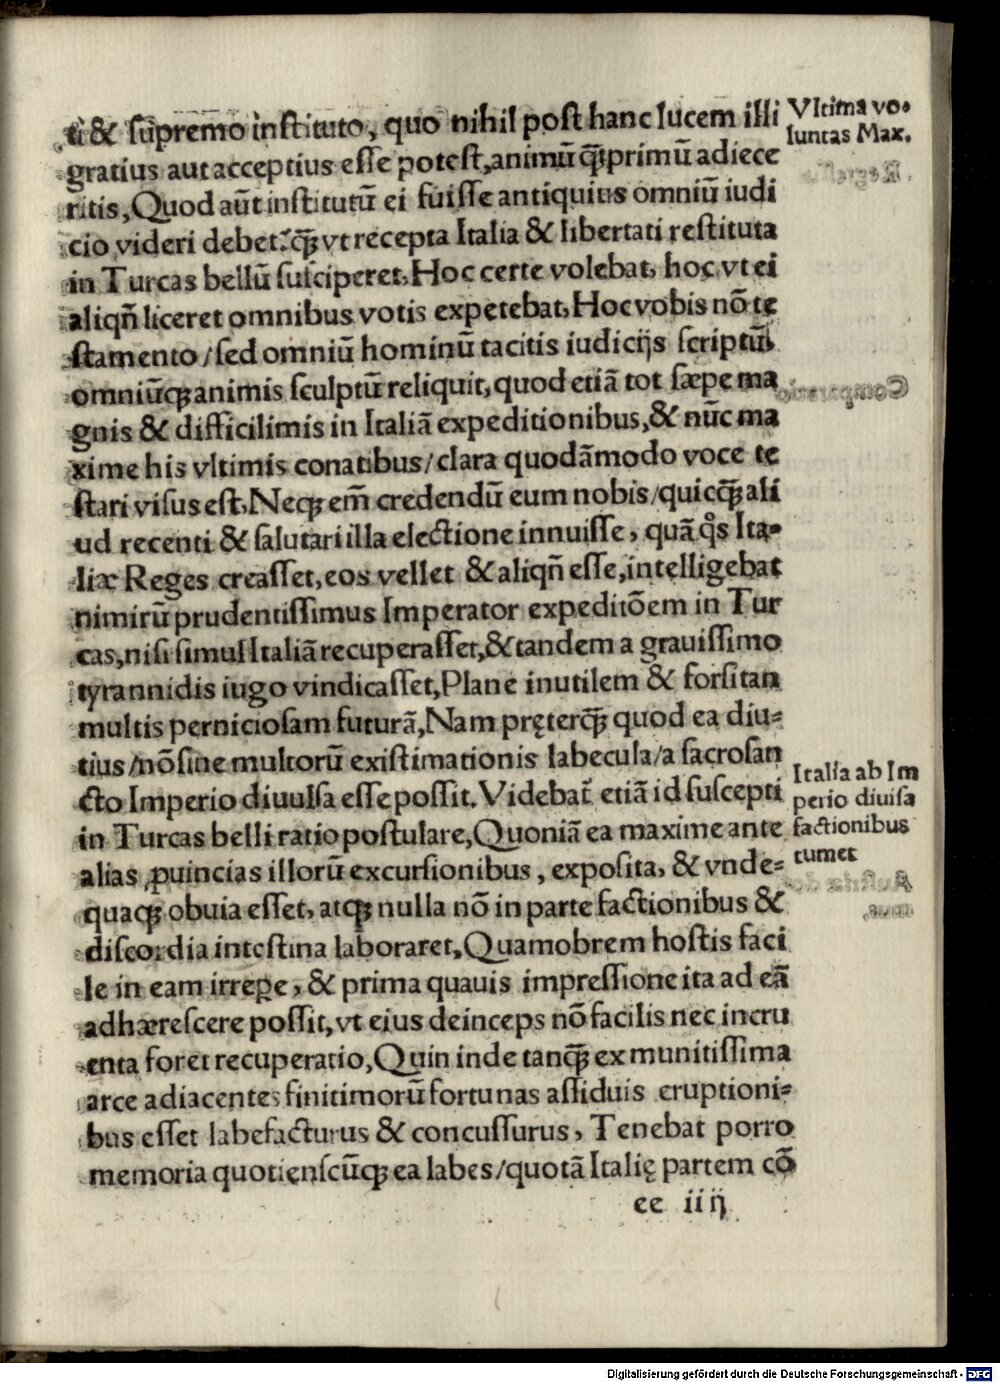 ti & supremo instituto, quo nihil post hanc lucem illi
gratius aut acceptius esse potest, animū qꝫprimū adiece
ritis, Quod aūt institutū ei fuisse antiquius omniū iudi
cio videri debet: qꝫ vt recepta Italia & libertati restituta
in Turcas bellū susciperet, Hoc certe volebat, hoc vt ei
aliqñ liceret omnibus votis expetebat, Hoc vobis nō te
stamento/sed omniū hominū tacitis iudicijs scriptū
omniūqꝫ animis sculptū reliquit, quod etiā tot sæpe ma
gnis & difficilimis in Italiā expeditionibus, & nūc ma
xime his vltimis conatibus/clara quodāmodo voce te
stari visus est, Neqꝫ em̄ credendū eum nobis/quicqꝫ ali
ud recenti & salutari illa electione innuisse, quā qͦs Ita-
liæ Reges creasset, eos vellet & aliqñ esse, intelligebat
nimirū prudentissimus Imperator expeditōem in Tur
cas, nisi simul Italiā recuperasset, & tandem a grauissimo
tyrannidis iugo vindicasset, Plane inutilem & forsitan
multis perniciosam futurā, Nam pręterqꝫ quod ea diu-
tius/nō sine multorū existimationis labecula/a sacrosan
cto Imperio diuulsa esse possit. Videbat᷑ etiā id suscepti
in Turcas belli ratio postulare, Quoniā ea maxime ante
alias ꝓuincias illorū excursionibus, exposita, & vnde-
quaqꝫ obuia esset, atqꝫ nulla nō in parte factionibus &
discordia intestina laboraret, Quamobrem hostis faci
le in eam irreꝑe, & prima quauis impressione ita ad eā
adhærescere possit, vt eius deinceps nō facilis nec incru
enta foret recuperatio, Quin inde tanqꝫ ex munitissima
arce adiacentes finitimorū fortunas assiduis eruptioni-
bus esset labefacturus & concussurus, Tenebat porro
memoria quotienscūqꝫ ea labes/quotā Italię partem cō
ee iiij
Vltima vo-
luntas Max.
Italia ab Im
perio diuisa
factionibus
tumet
Digitalisierung gefördert durch die Deutsche Forschungsgemeinschaft - DFG